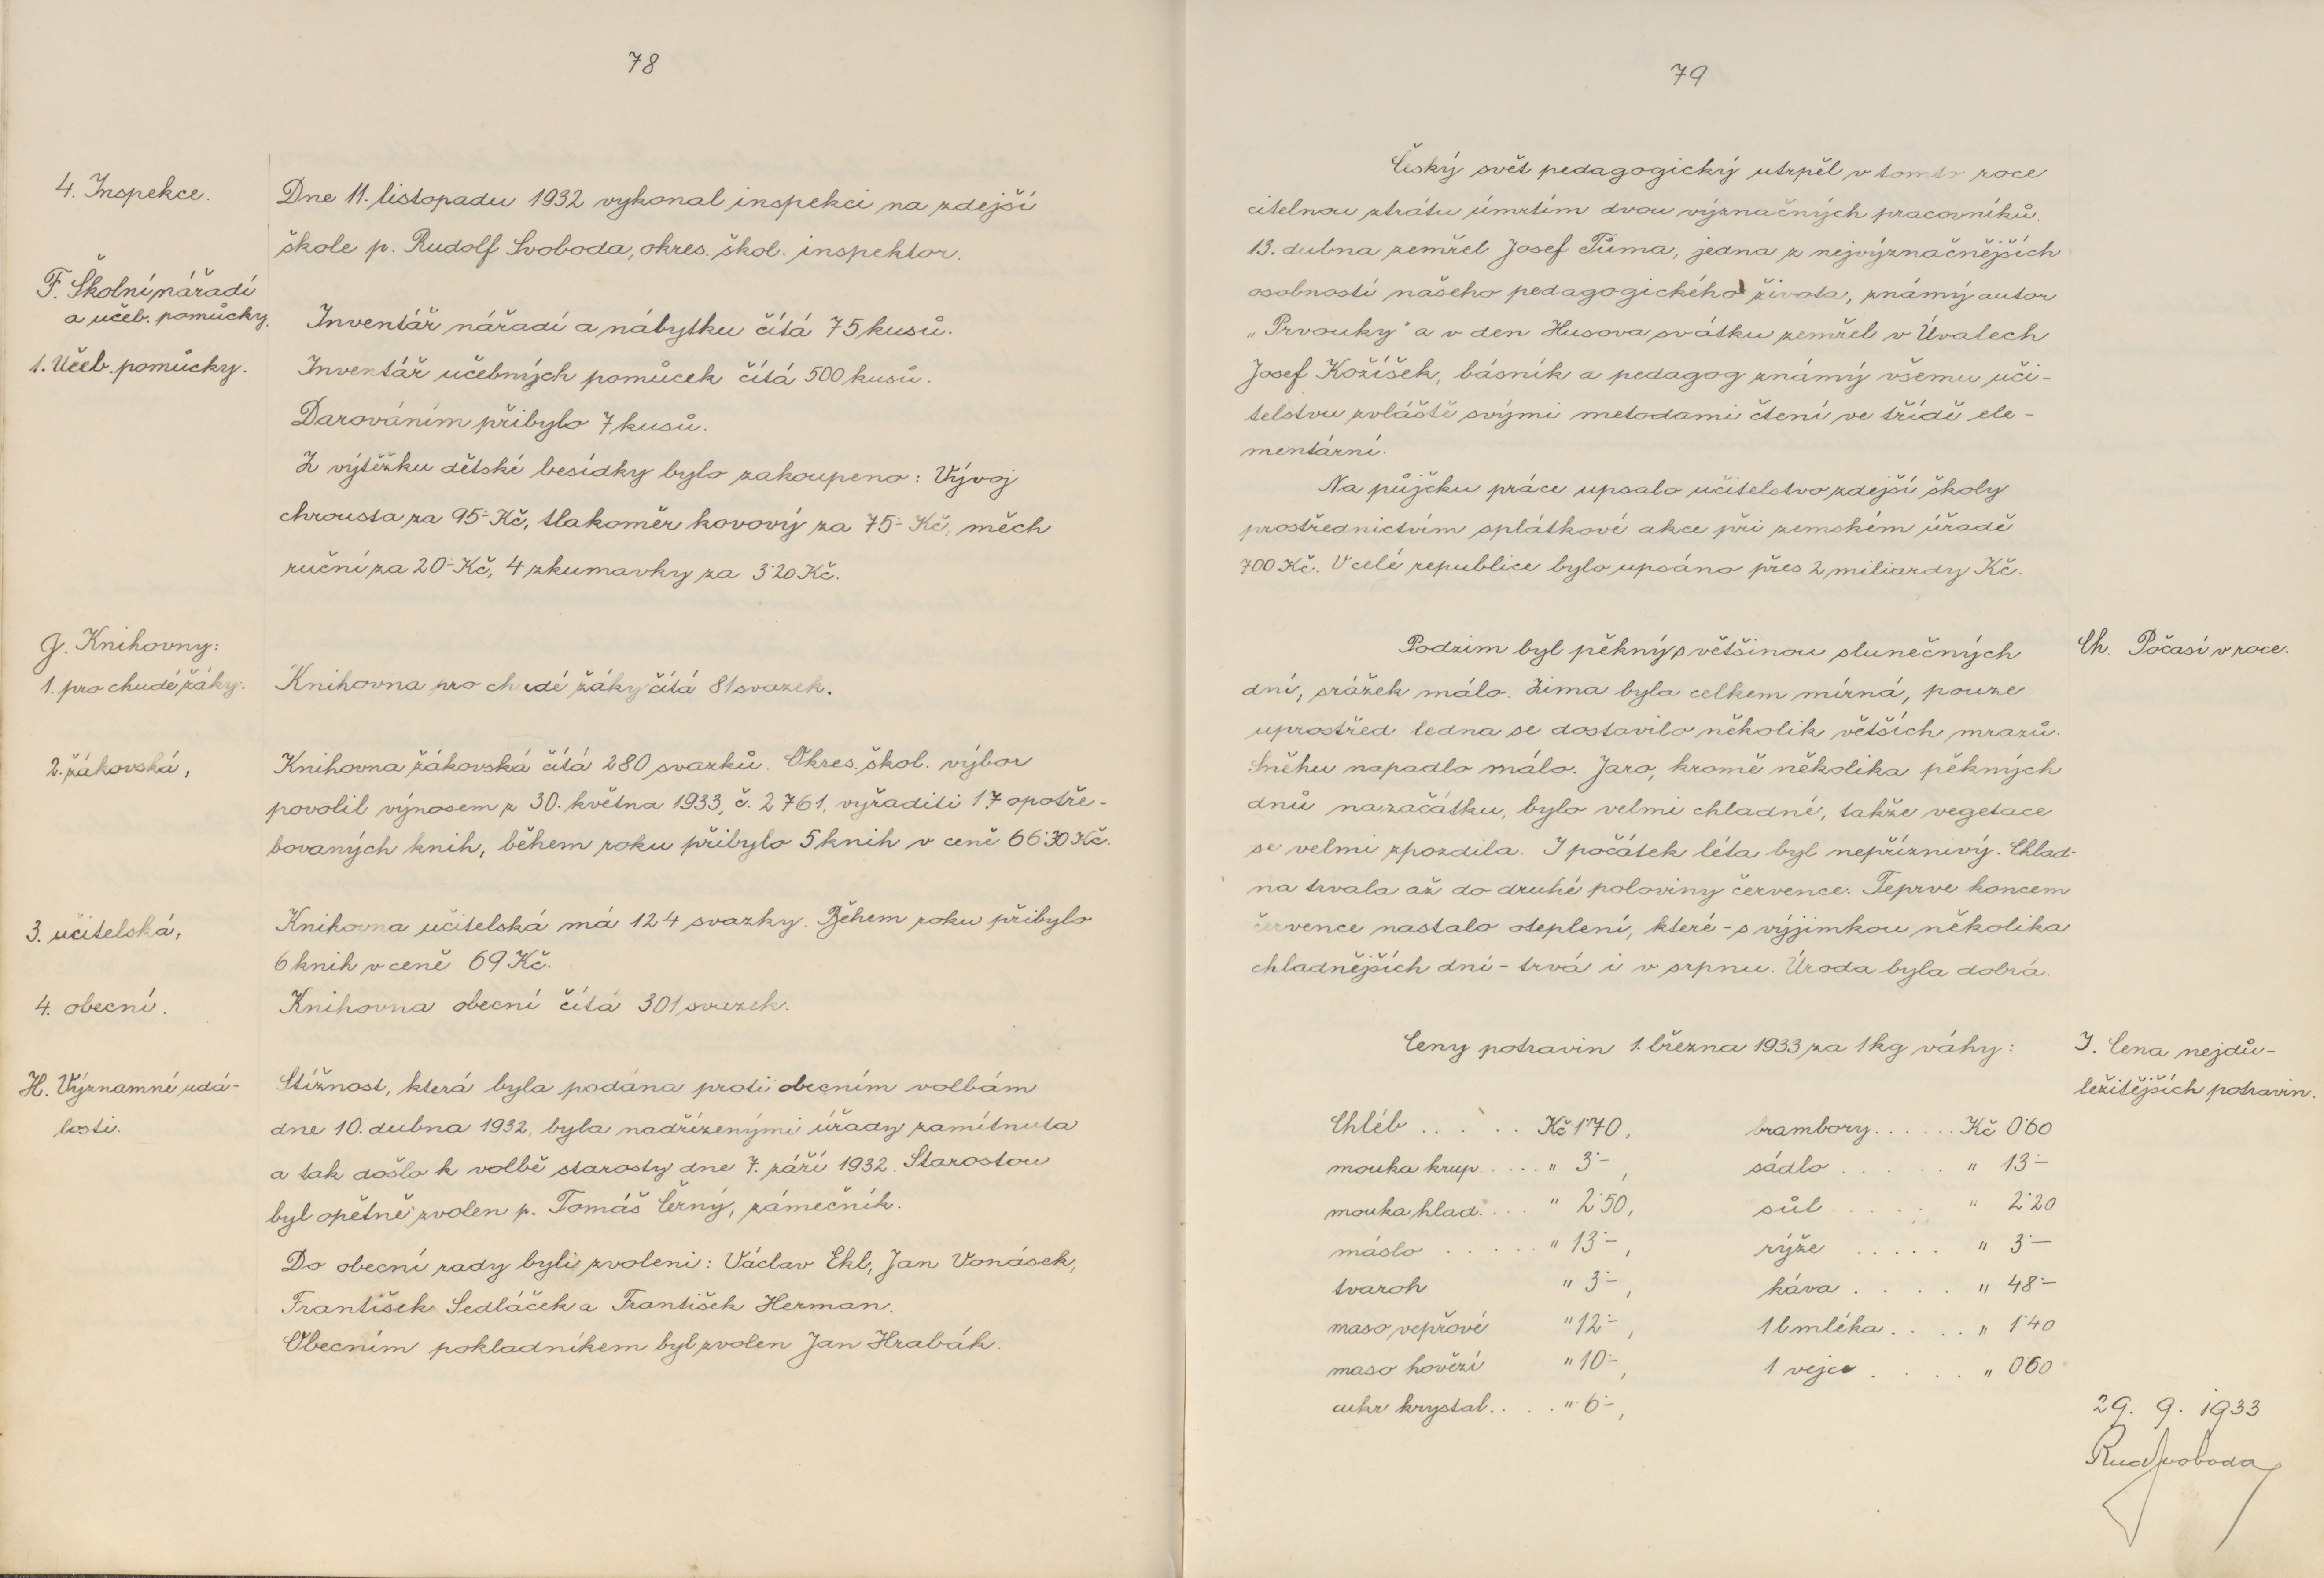 78
4. Inspekce.
Dne 11. listopadu 1932 vykonal inspekci na zdejší
škole p. Rudolf Svoboda, okres. škol. inspektor.
F. Školní nářadí
a učeb. pomůcky.
Inventář nářadí a nábytku čítá 75 kusů.
1. Učeb. pomůcky.
Inventář učebných pomůcek čítá 500 kusů.
Darováním přibylo 7 kusů.
Z výtěžku dětské besídky bylo zakoupeno: Vývoj
chrousta za 95·- Kč, tlakoměr kovový za 75·- Kč, měch
ruční za 20·- Kč, 4 zkumavky za 3·20 Kč.
G. Knihovny:
1. pro chudé žáky.
Knihovna pro chudé žáky čítá 81 svazek.
2. žákovská,
Knihovna žákovská čítá 280 svazků. Okres. škol. výbor
povolil výnosem z 30. května 1933, č. 2761, vyřaditi 17 opotře-
bovaných knih, během roku přibylo 5 knih v ceně 66·30 Kč.
3. učitelská,
Knihovna učitelská má 124 svazky. Během roku přibylo
6 knih v ceně 69 Kč.
4. obecní.
Knihovna obecní čítá 301 svazek.
H. Významné udá-
losti.
Stížnost, která byla podána proti obecním volbám
dne 10. dubna 1932, byla nadřízenými úřady zamítnuta
a tak došlo k volbě starosty dne 7. září 1932. Starostou
byl opětně zvolen p. Tomáš Černý, zámečník.
Do obecní rady byli zvoleni: Václav Ekl, Jan Vonásek,
František Sedláček a František Herman.
Obecním pokladníkem byl zvolen Jan Hrabák.
79
Český svět pedagogický utrpěl v tomto roce
citelnou ztrátu úmrtím dvou význačných pracovníků.
13. dubna zemřel Josef Tůma, jedna z nejvýznačnějších
osobností našeho pedagogického života, známý autor
„Prvouky" a v den Husova svátku zemřel v Úvalech
Josef Kožíšek, básník a pedagog známý všemu uči-
telstvu zvláště svými metodami čtení ve třídě ele-
mentární.
Na půjčku práce upsalo učitelstvo zdejší školy
prostřednictvím splátkové akce při zemském úřadě
700 Kč. V celé republice bylo upsáno přes 2 miliardy Kč.
Ch. Počasí v roce.
Podzim byl pěkný s většinou slunečných
dní, srážek málo. Zima byla celkem mírná, pouze
uprostřed ledna se dostavilo několik větších mrazů.
Sněhu napadlo málo. Jaro, kromě několika pěkných
dnů na začátku, bylo velmi chladné, takže vegetace
se velmi zpozdila. I počátek léta byl nepříznivý. Chlad-
na trvala až do druhé poloviny července. Teprve koncem
července nastalo oteplení, které - s výjimkou několika
chladnějších dní - trvá i v srpnu. Úroda byla dobrá.
I. Cena nejdů-
ležitějších potravin.
Ceny potravin 1. března 1933 za 1 kg váhy:
Chléb . . . . . Kč 1·70, brambory . . . . . . Kč 0·60
mouka krup. . . . . " 3·-, sádlo . . . . . . " 13·-
mouka hlad. . . . " 2·50, sůl . . . . . " 2·20
máslo . . . . . " 13·-, rýže . . . . . " 3·-
tvaroh " 3·-, káva . . . . " 48·-
maso vepřové " 12·-, 1 l mléka . . . . " 1·40
maso hovězí " 10·-, 1 vejce . . . . " 0·60
cukr krystal . . . . " 6·-,
29. 9. 1933
Rud Svoboda